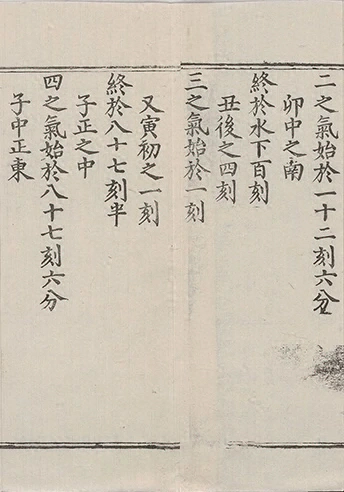 二之氣始於一十二刻六分
卯中之南
終於水下百刻
丑後之四刻
三之氣始於一刻
又寅初之一刻
終於八十七刻半
子正之中
四之氣始於八十七刻六分
子中正東